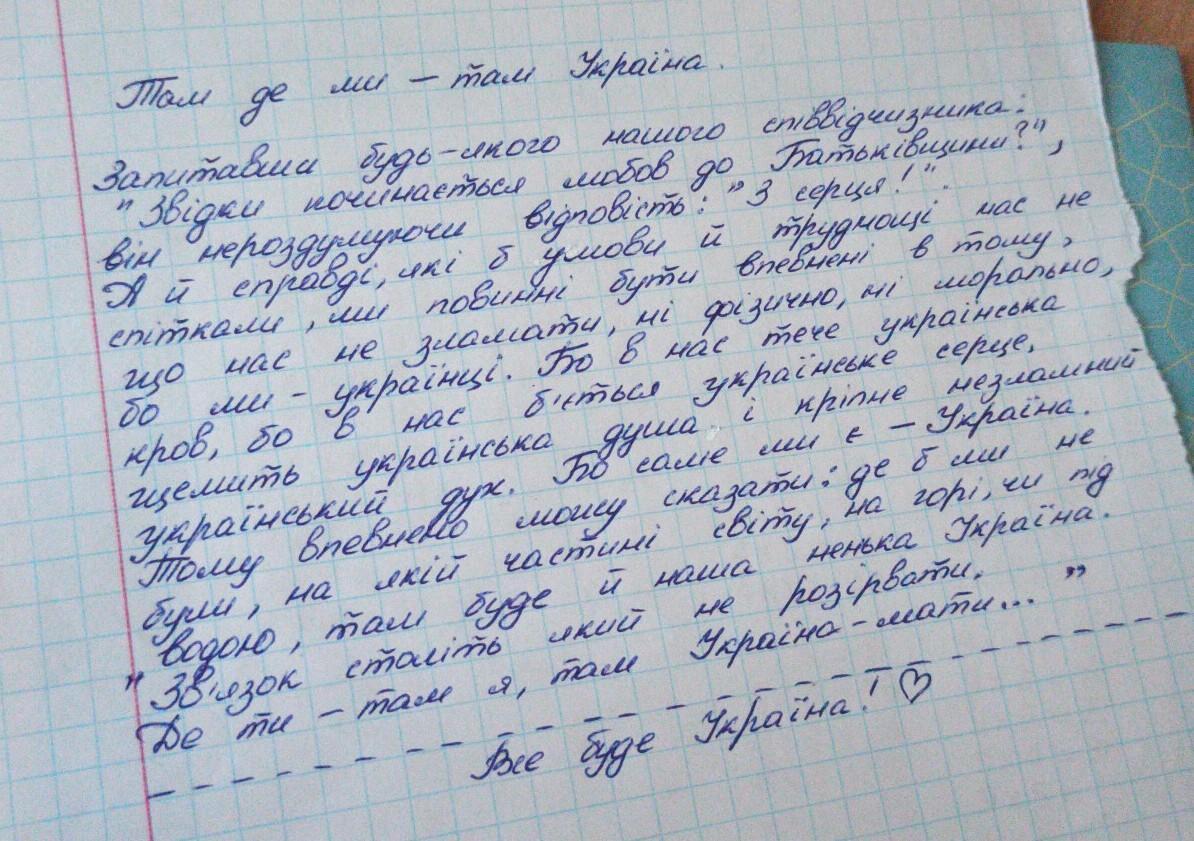 Там де ми – там Україна.
Запитавши будь-якого нашого співвідчизника:
"Звідки починається любов до Батьківщини?",
він нероздумуючи відповість: "З серця!".
А й справді, які б умови й труднощі нас не
спіткали, ми повинні бути впевнені в тому,
що нас не зламати, ні фізично, ні морально,
бо ми - українці. Бо в нас тече українська
кров, бо в нас б'ється українське серце,
щемить українська душа і кріпне незламний
український дух. Бо саме ми є – Україна.
Тому впевнено можу сказати: де б ми не
були, на якій частині світу, на горі, чи під
водою, там буде й наша ненька Україна.
"Зв'язок століть який не розірвати.
Де ти – там я, там Україна-мати..."
Все буде Україна! ♡